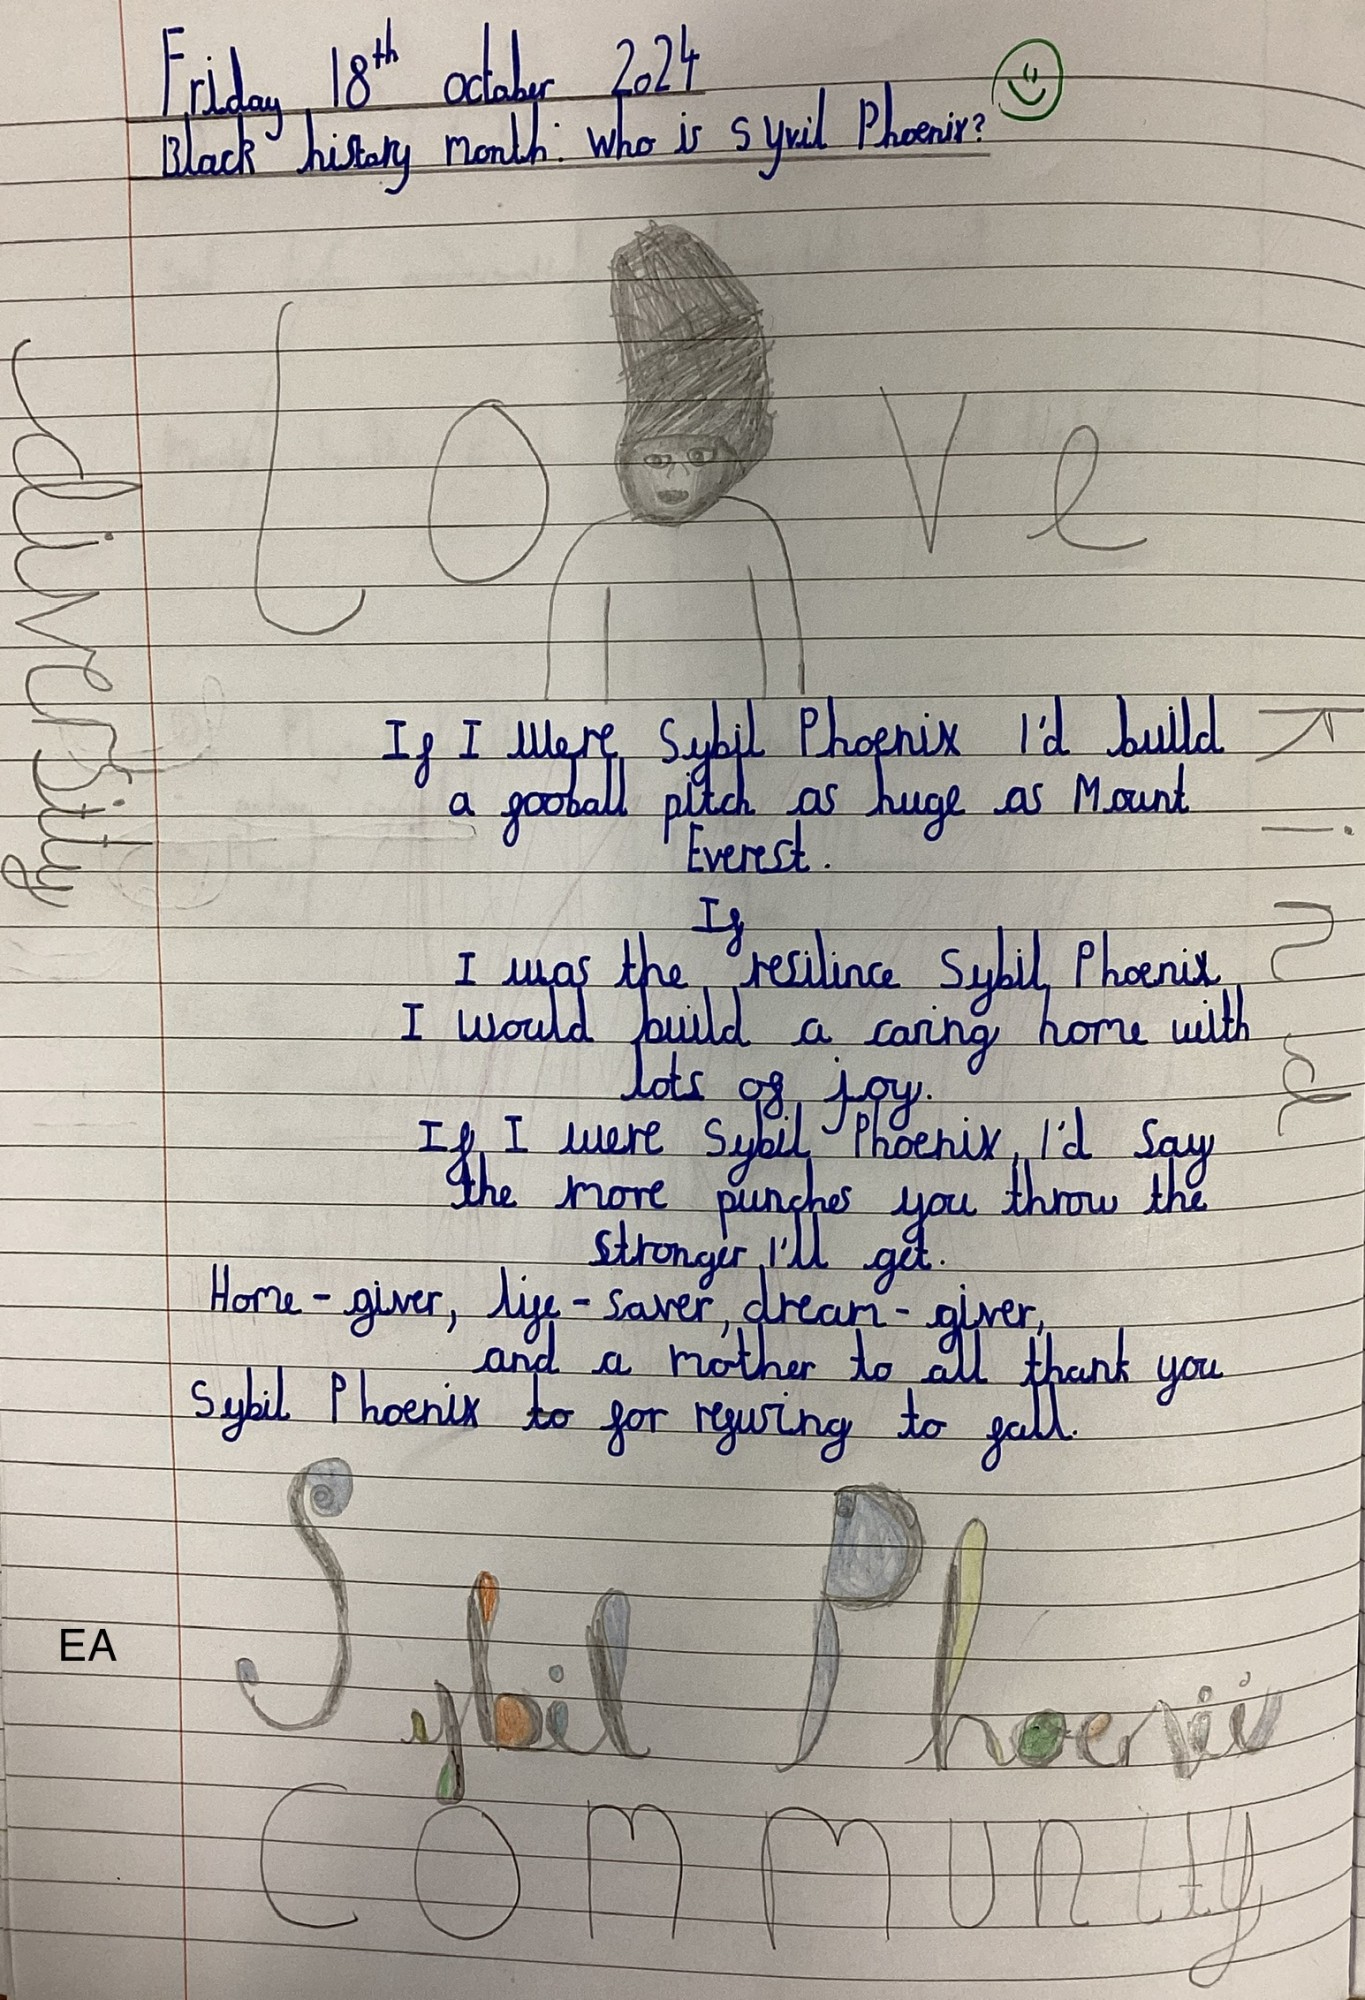 Friday 18th october 2024
Black history month: who is syvil Phoenix?
Love
diversity
Kind
If I were Sybil Phoenix I'd build
a gooball pitch as huge as Mount
Everest.
If
I was the resilince Sybil Phoenix
I would build a caring home with
lots of joy.
If I were Sybil Phoenix, I'd say
the more punches you throw the
stronger I'll get.
Home-giver, life-saver, dream-giver,
and a mother to all thank you
Sybil Phoenix to for refusing to fall.
EA
Sybil Phoenix
Community